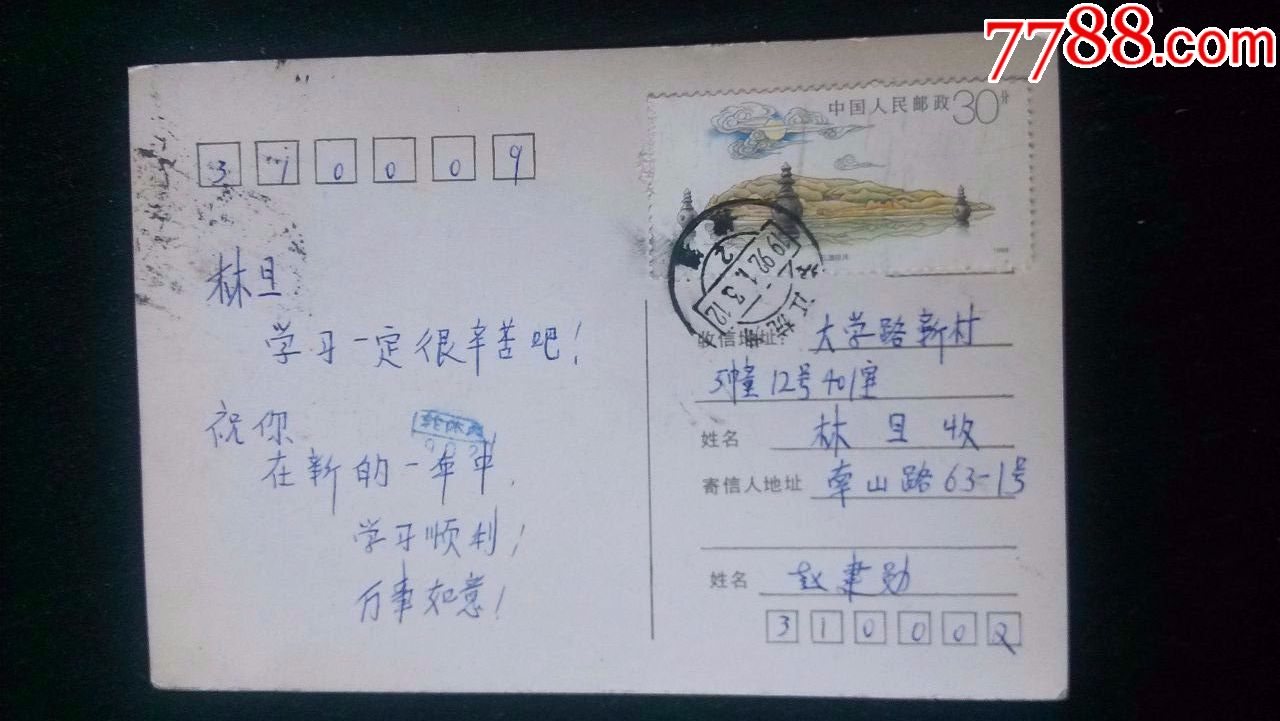 7788.com
中国人民邮政 30分
310009
林旦
学习一定很辛苦吧！
祝你
在新的一年中，
学习顺利！
万事如意！
浙江杭
92.1.3.12
收信地址： 大学路新村
5幢12号401室
姓名 林旦收
寄信人地址 南山路63-1号
姓名 赵建勋
310002